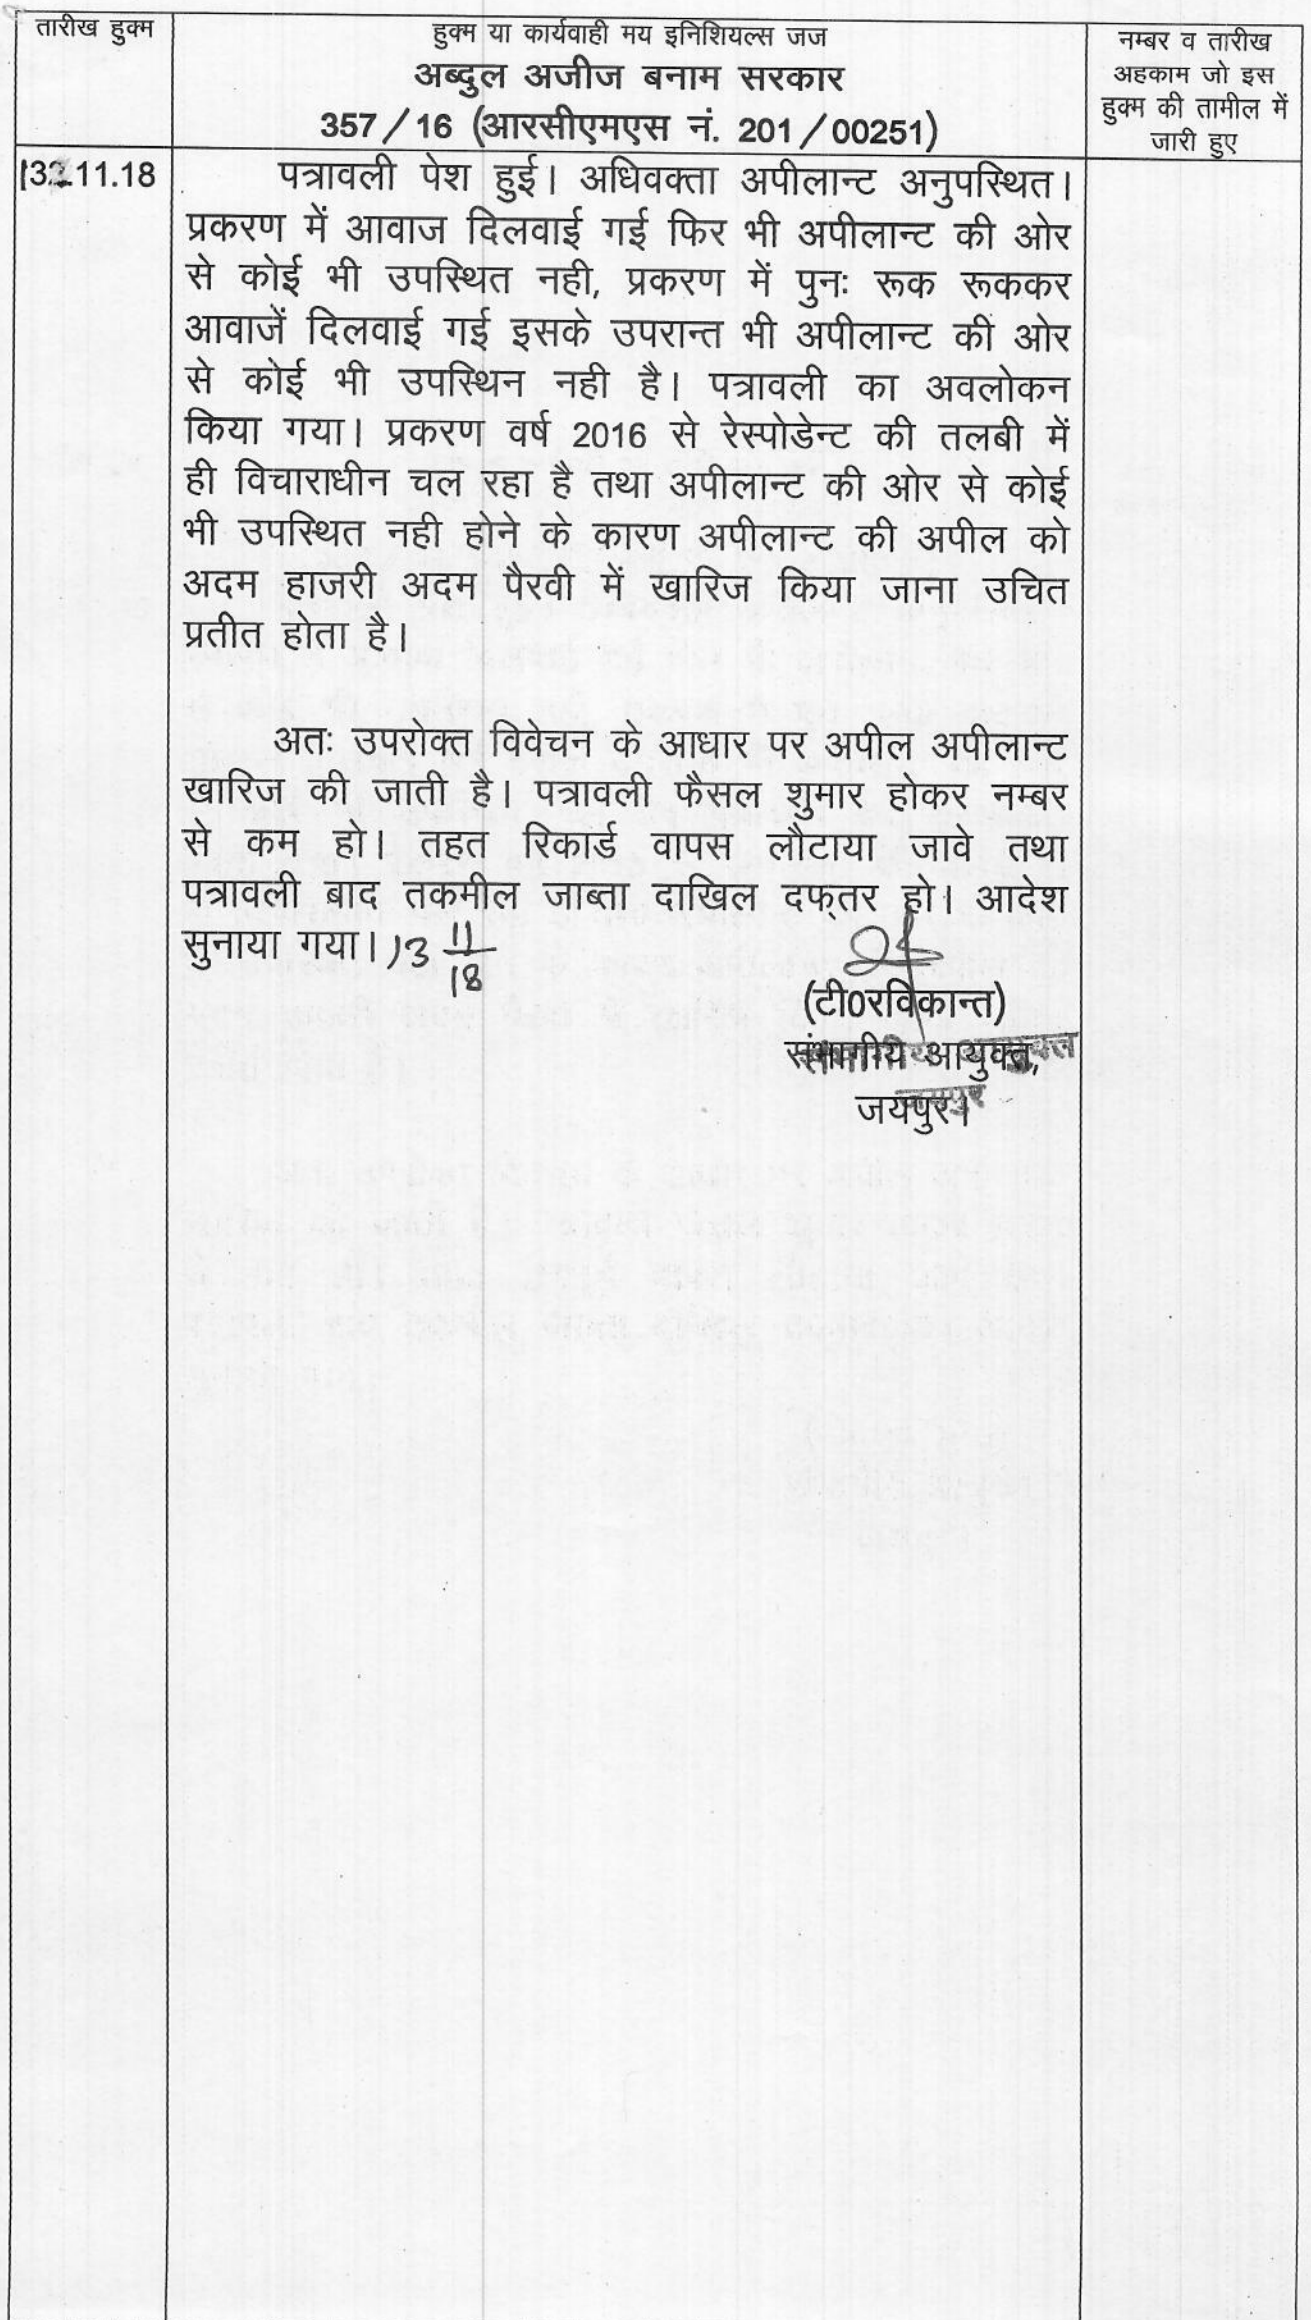 तारीख हुक्म
हुक्म या कार्यवाही मय इनिशियल्स जज
अब्दुल अजीज बनाम सरकार
357/16 (आरसीएमएस नं. 201/00251)
नम्बर व तारीख
अहकाम जो इस
हुक्म की तामील में
जारी हुए
13.11.18
पत्रावली पेश हुई। अधिवक्ता अपीलान्ट अनुपस्थित।
प्रकरण में आवाज दिलवाई गई फिर भी अपीलान्ट की ओर
से कोई भी उपस्थित नही, प्रकरण में पुनः रूक रूककर
आवाजें दिलवाई गई इसके उपरान्त भी अपीलान्ट की ओर
से कोई भी उपस्थिन नही है। पत्रावली का अवलोकन
किया गया। प्रकरण वर्ष 2016 से रेस्पोडेन्ट की तलबी में
ही विचाराधीन चल रहा है तथा अपीलान्ट की ओर से कोई
भी उपस्थित नही होने के कारण अपीलान्ट की अपील को
अदम हाजरी अदम पैरवी में खारिज किया जाना उचित
प्रतीत होता है।
अतः उपरोक्त विवेचन के आधार पर अपील अपीलान्ट
खारिज की जाती है। पत्रावली फैसल शुमार होकर नम्बर
से कम हो। तहत रिकार्ड वापस लौटाया जावे तथा
पत्रावली बाद तकमील जाब्ता दाखिल दफ्तर हो। आदेश
सुनाया गया। 13 11/18
(टी0रविकान्त)
संभागीय आयुक्त,
जयपुर।